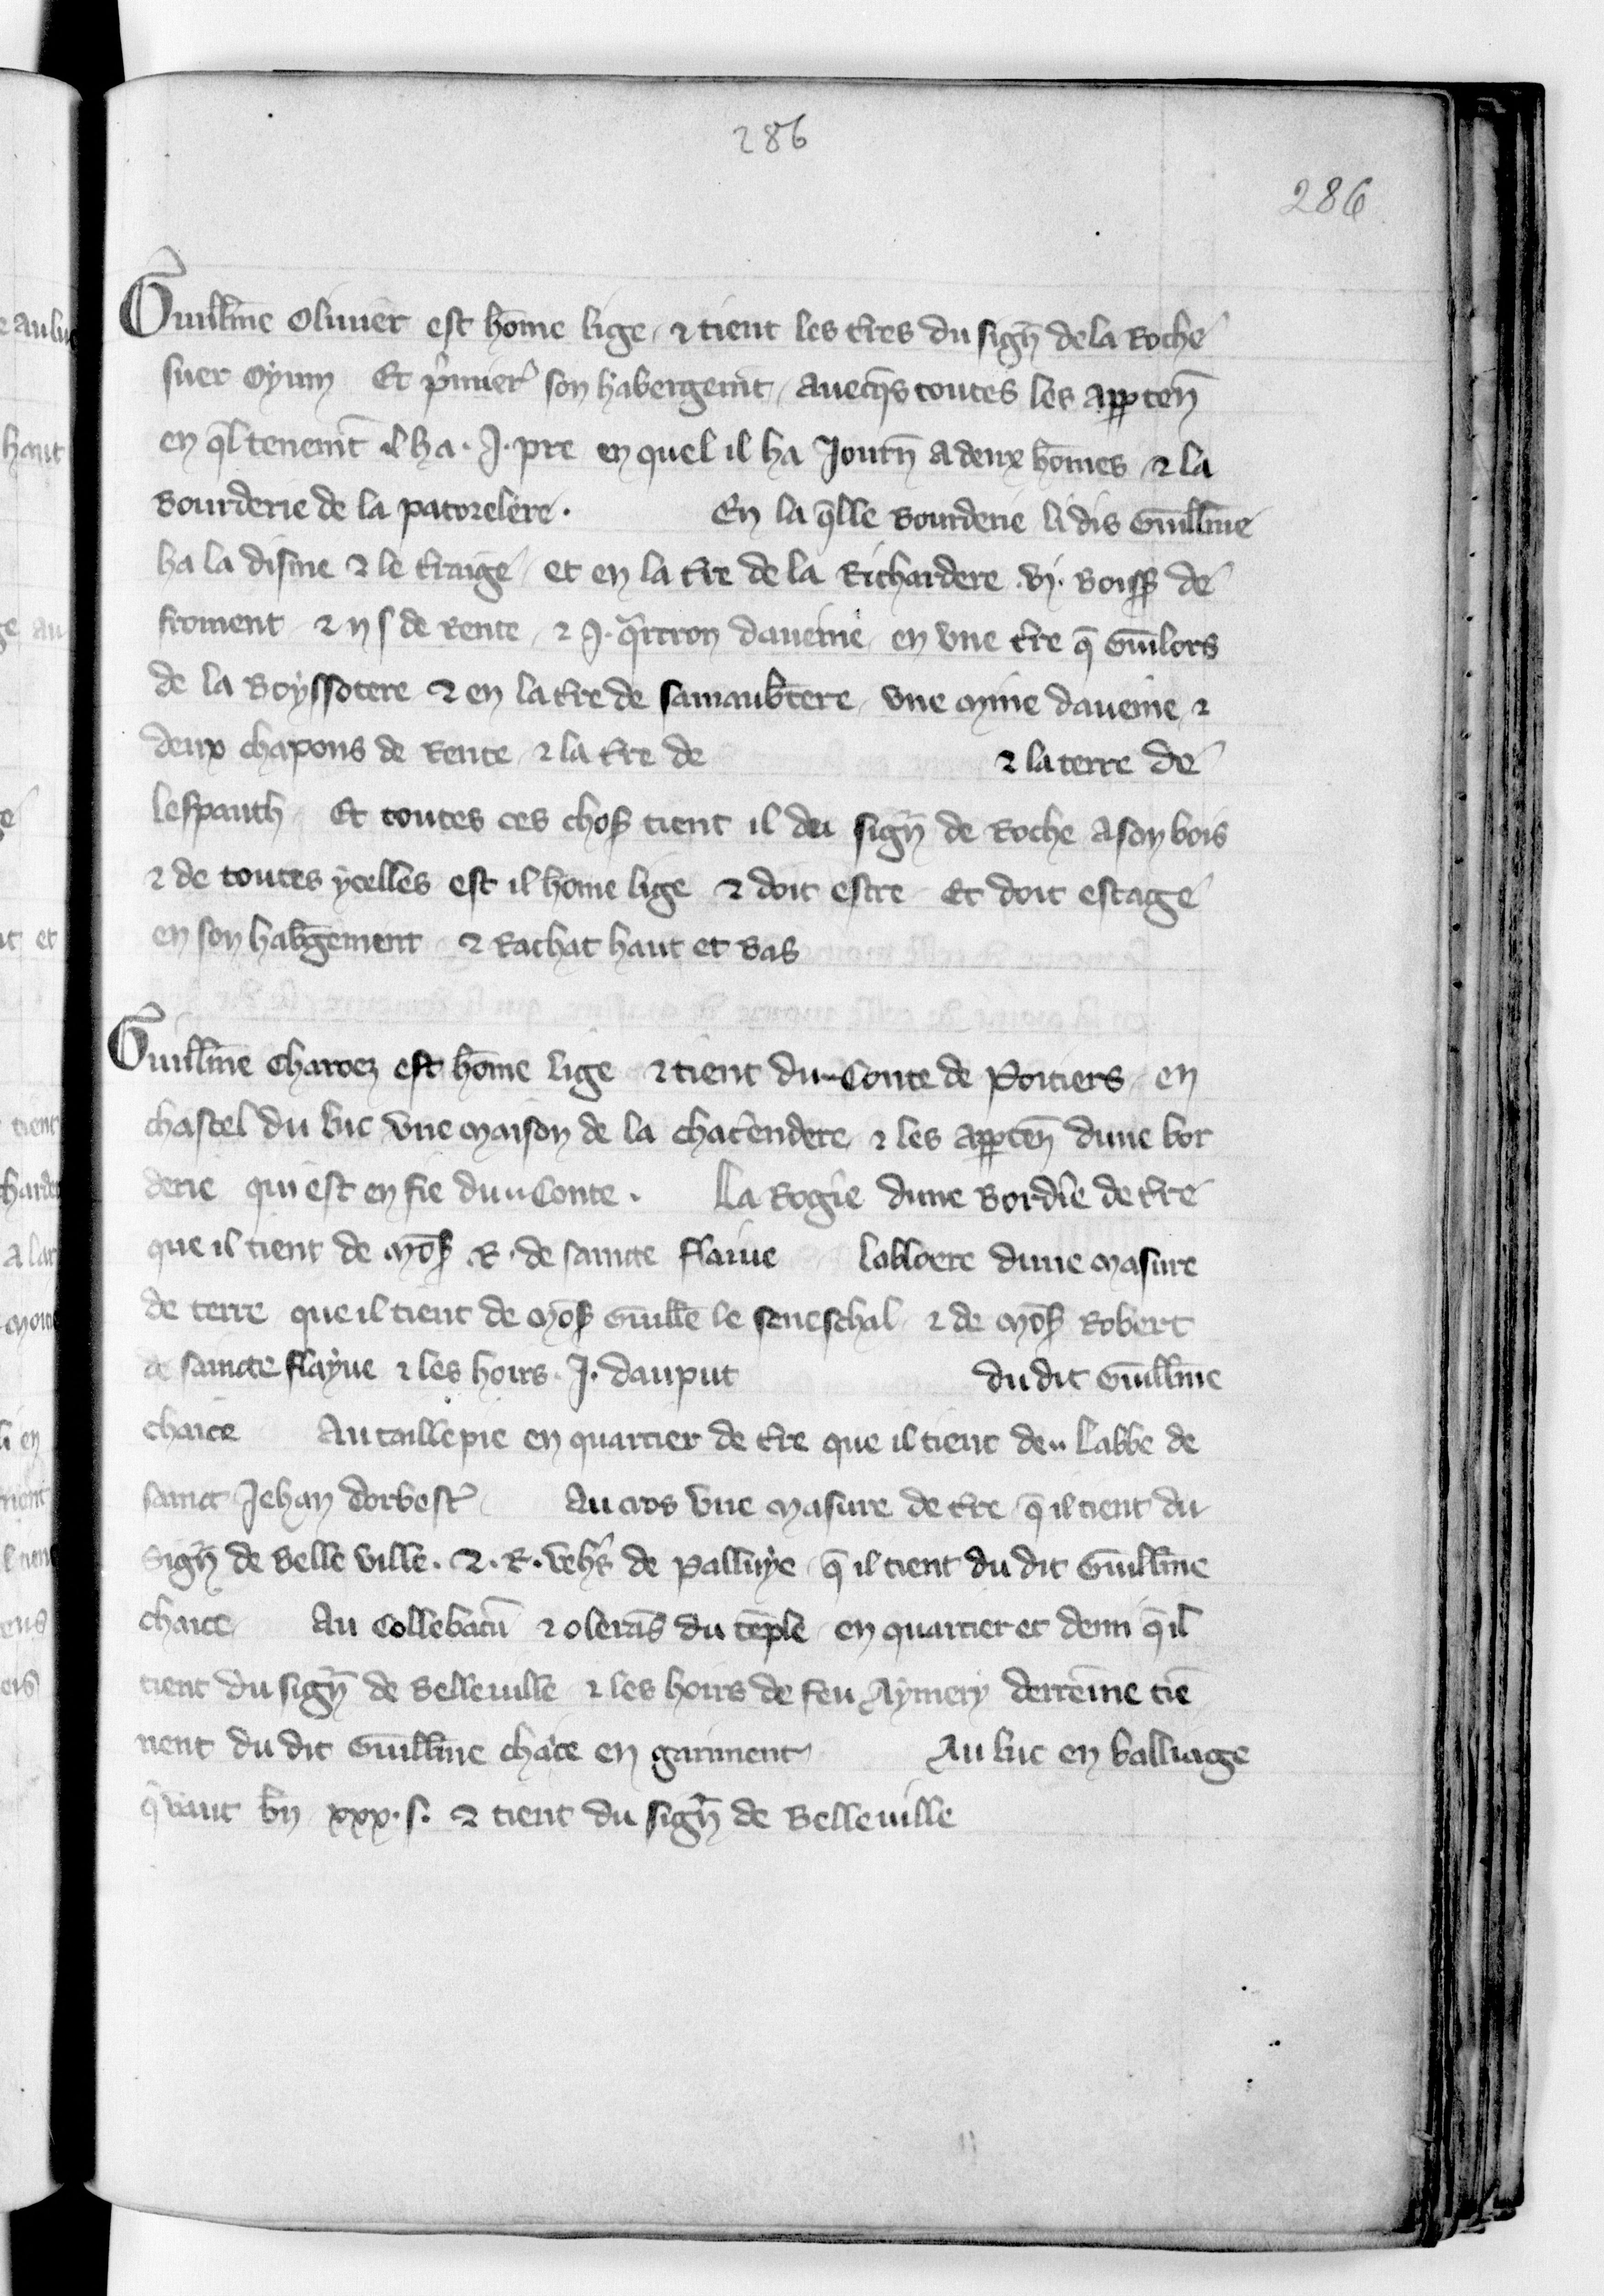 286
286
Guillme Olivier est home lige, & tient les tres du sign de la Roche
suer Oyum Et pmier son habergemt, avecqs toutes les appten
en ql tenemt il ha .I. pre en quel il ha Journ a deux homes & la
Bourderie de la patorelere. En la qlle Bourderie li dis Guillme
ha la disme & le traige et en la tre de la Richardere .vi. Boiss de
froment & ii s de Rente, & .I. qrtron daveine en une tre q Guilors
de la Boyssotere & en la tre de samaubtere une mine daveine, &
deux chapons de Rente, & la tre de & la terre de
lespauth Et toutes ces chos tient il du sign de Roche a son bois
& de toutes ycelles est il home lige & doit estre Et doit estage
en son habgement & Rachat haut et Bas
Guillme Charoez est home lige & tient du Conte de Poitiers en
chastel du luc une maison de la chatendere, & les appten dune bor
derie qui est en fie du Conte. La Rogie dune Bordie de tre
que il tient de Mos R. de saincte flaive lobloere dune masure
de terre que il tient de Mos Guille le seneschal & de Mos Robert
de saincte flayve & les hoirs .J. dauput du dit Guillme
chaice Au taillepie en quartier de tre que il tient de labbe de
sainct Jehan dorbest Au cros une masure de tre q il tient du
Sign de Belle ville. &. R. vehs de Palluye q il tient du dit Guillme
chaice Au Collebatu & olerās du teple en quartier et demi q il
tient du sign de Belleville & les hoirs de feu Aymery derreine tie
nent du dit Guillme chace en gariment Au luc en balliage
q vaut bn xxx. s. & tient du sign de Belleville